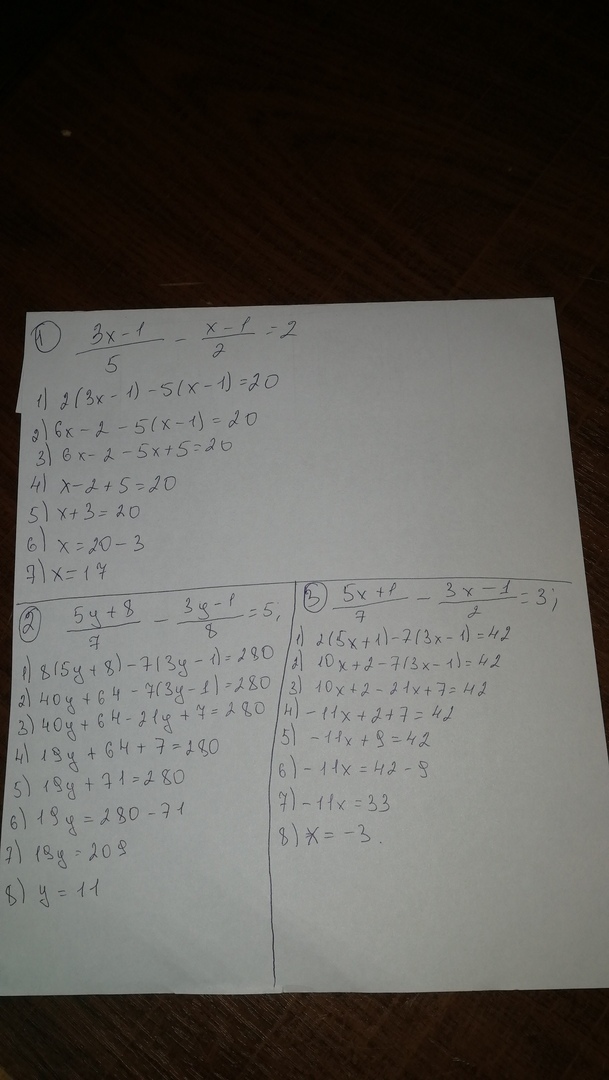 ① (3x-1)/5 - (x-1)/2 = 2
1) 2(3x-1)-5(x-1)=20
2) 6x-2-5(x-1)=20
3) 6x-2-5x+5=20
4) x-2+5=20
5) x+3=20
6) x=20-3
7) x=17
② (5y+8)/7 - (3y-1)/8 = 5;
1) 8(5y+8)-7(3y-1)=280
2) 40y+64-7(3y-1)=280
3) 40y+64-21y+7=280
4) 19y+64+7=280
5) 19y+71=280
6) 19y=280-71
7) 19y=209
8) y=11
③ (5x+1)/7 - (3x-1)/2 = 3;
1) 2(5x+1)-7(3x-1)=42
2) 10x+2-7(3x-1)=42
3) 10x+2-21x+7=42
4) -11x+2+7=42
5) -11x+9=42
6) -11x=42-9
7) -11x=33
8) x=-3.